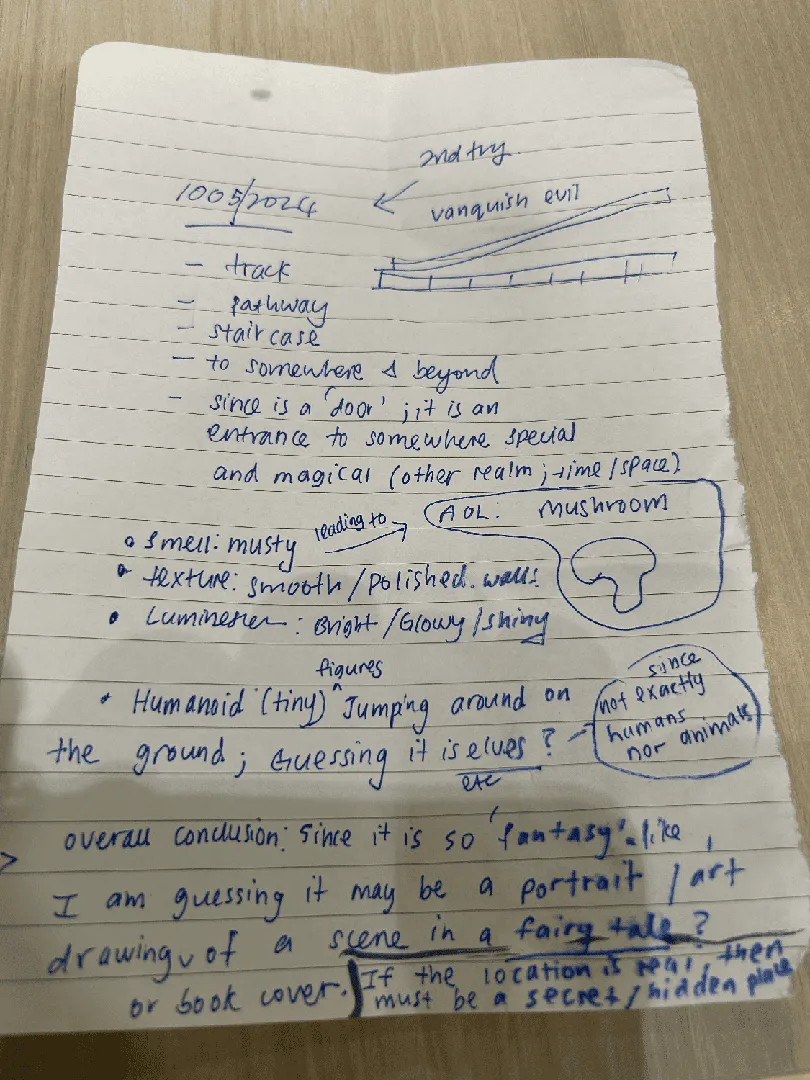 2nd try.
1005/2024
vanquish evil
- track
- Pathway
- staircase
- to somewhere & beyond
- since is a 'door'; it is an
entrance to somewhere special
and magical (other realm; time/space)
• Smell: musty
leading to
AOL: Mushroom
• texture: smooth/polished. walls
• Luminescen: Bright/Glowy/shiny
figures
• Humanoid (tiny) ^ Jumping around on
the ground; Guessing it is elves?
etc
since
not exactly
humans
nor animals
overall conclusion: Since it is so 'fantasy'-like,
I am guessing it may be a portrait/art
drawing of a scene in a fairy tale?
or book cover.
If the location is real, then
must be a secret/hidden place